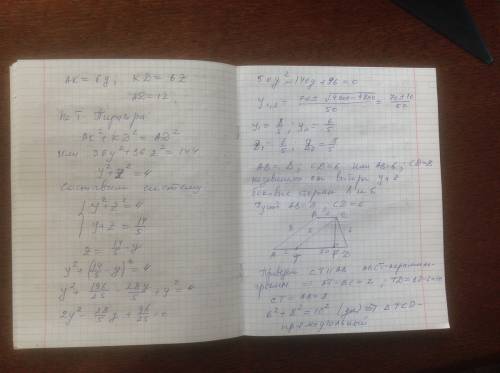 AK = 6y; KD = 6z
AD = 12.
По т. Пифагора
AK² + KD² = AD²
или 36y² + 36z² = 144
y² + z² = 4
Составим систему
y² + z² = 4
y + z = 14/5
z = 14/5 - y
y² + (14/5 - y)² = 4
y² + 196/25 - 28/5 y + y² = 4
2y² - 28/5 y + 96/25 = 0
50y² - 140y + 96 = 0
y₁,₂ = (70 ± √4900 - 4800)/50 = (70 ± 10)/50
y₁ = 8/5; y₂ = 6/5
z₁ = 6/5; z₂ = 8/5
AB = 8; CD = 6 или AB = 6; CD = 8
от выбора y и z
боковые стороны 8 и 6
Пусть AB = 8; CD = 6
B 2 C
8 8 6
A T 10 D
Проведем CT || AB ABCT - параллело-
грамм ⇒ AT = BC = 2; TD = AD - 2 = 10
CT = AB = 8
6² + 8² = 10² ⇒ △TCD -
прямоугольный